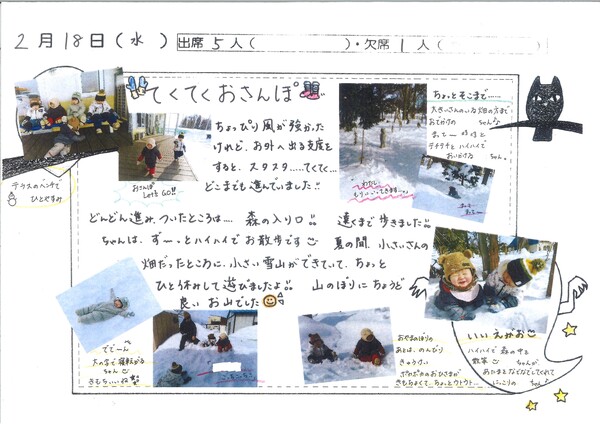 2月18日(水) 出席5人( )・欠席1人( )
てくてくおさんぽ
ちょっぴり風が強かった
けれど、お外へ出る支度を
すると、スタスタ……てくて…
どこまでも進んでいました!!
どんどん進み、ついたところは…… 森の入り口!! 遠くまで歩きました!!
ちゃんは、ずーっとハイハイでお散歩です 夏の間、小さいさんの
畑だったところに、小さい雪山ができていて、ちょっと
ひと休みして遊びましたよ!! 山のぼりにちょうど
良いお山でした
テラスのベンチで
ひとやすみ
おさんぽ
Let's GO!!
ちょっとそこまで……
大きいさんのいる畑の方まで
おでかけの ちゃん
まってー
テチテチとハイハイで
おいかける ちゃん。
まってー
でーん
大の字で寝転がる
ちゃん
きもちいいね
おやまのぼりの
あとは、のんびり
きゅうけい
ポカポカのおひさまが
きもちよくて、ちょっとウトウト…
いいえがお
ハイハイで森の中を
ちゃんが
あたまをなでなでしてくれて
にっこりの ちゃん